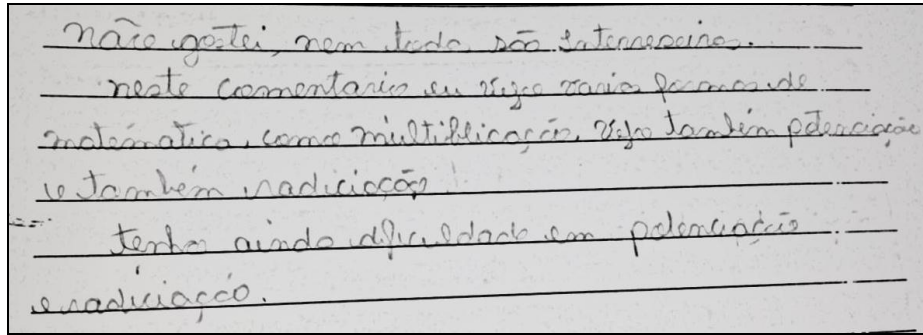 não gostei, nem todo são interressino.
neste comentario eu vejo varia formas de
matématica, como multiblicação, vejo também pótenciação
e também radiciação.
tenho ainda dificuldade em potenciação
e radiciação.